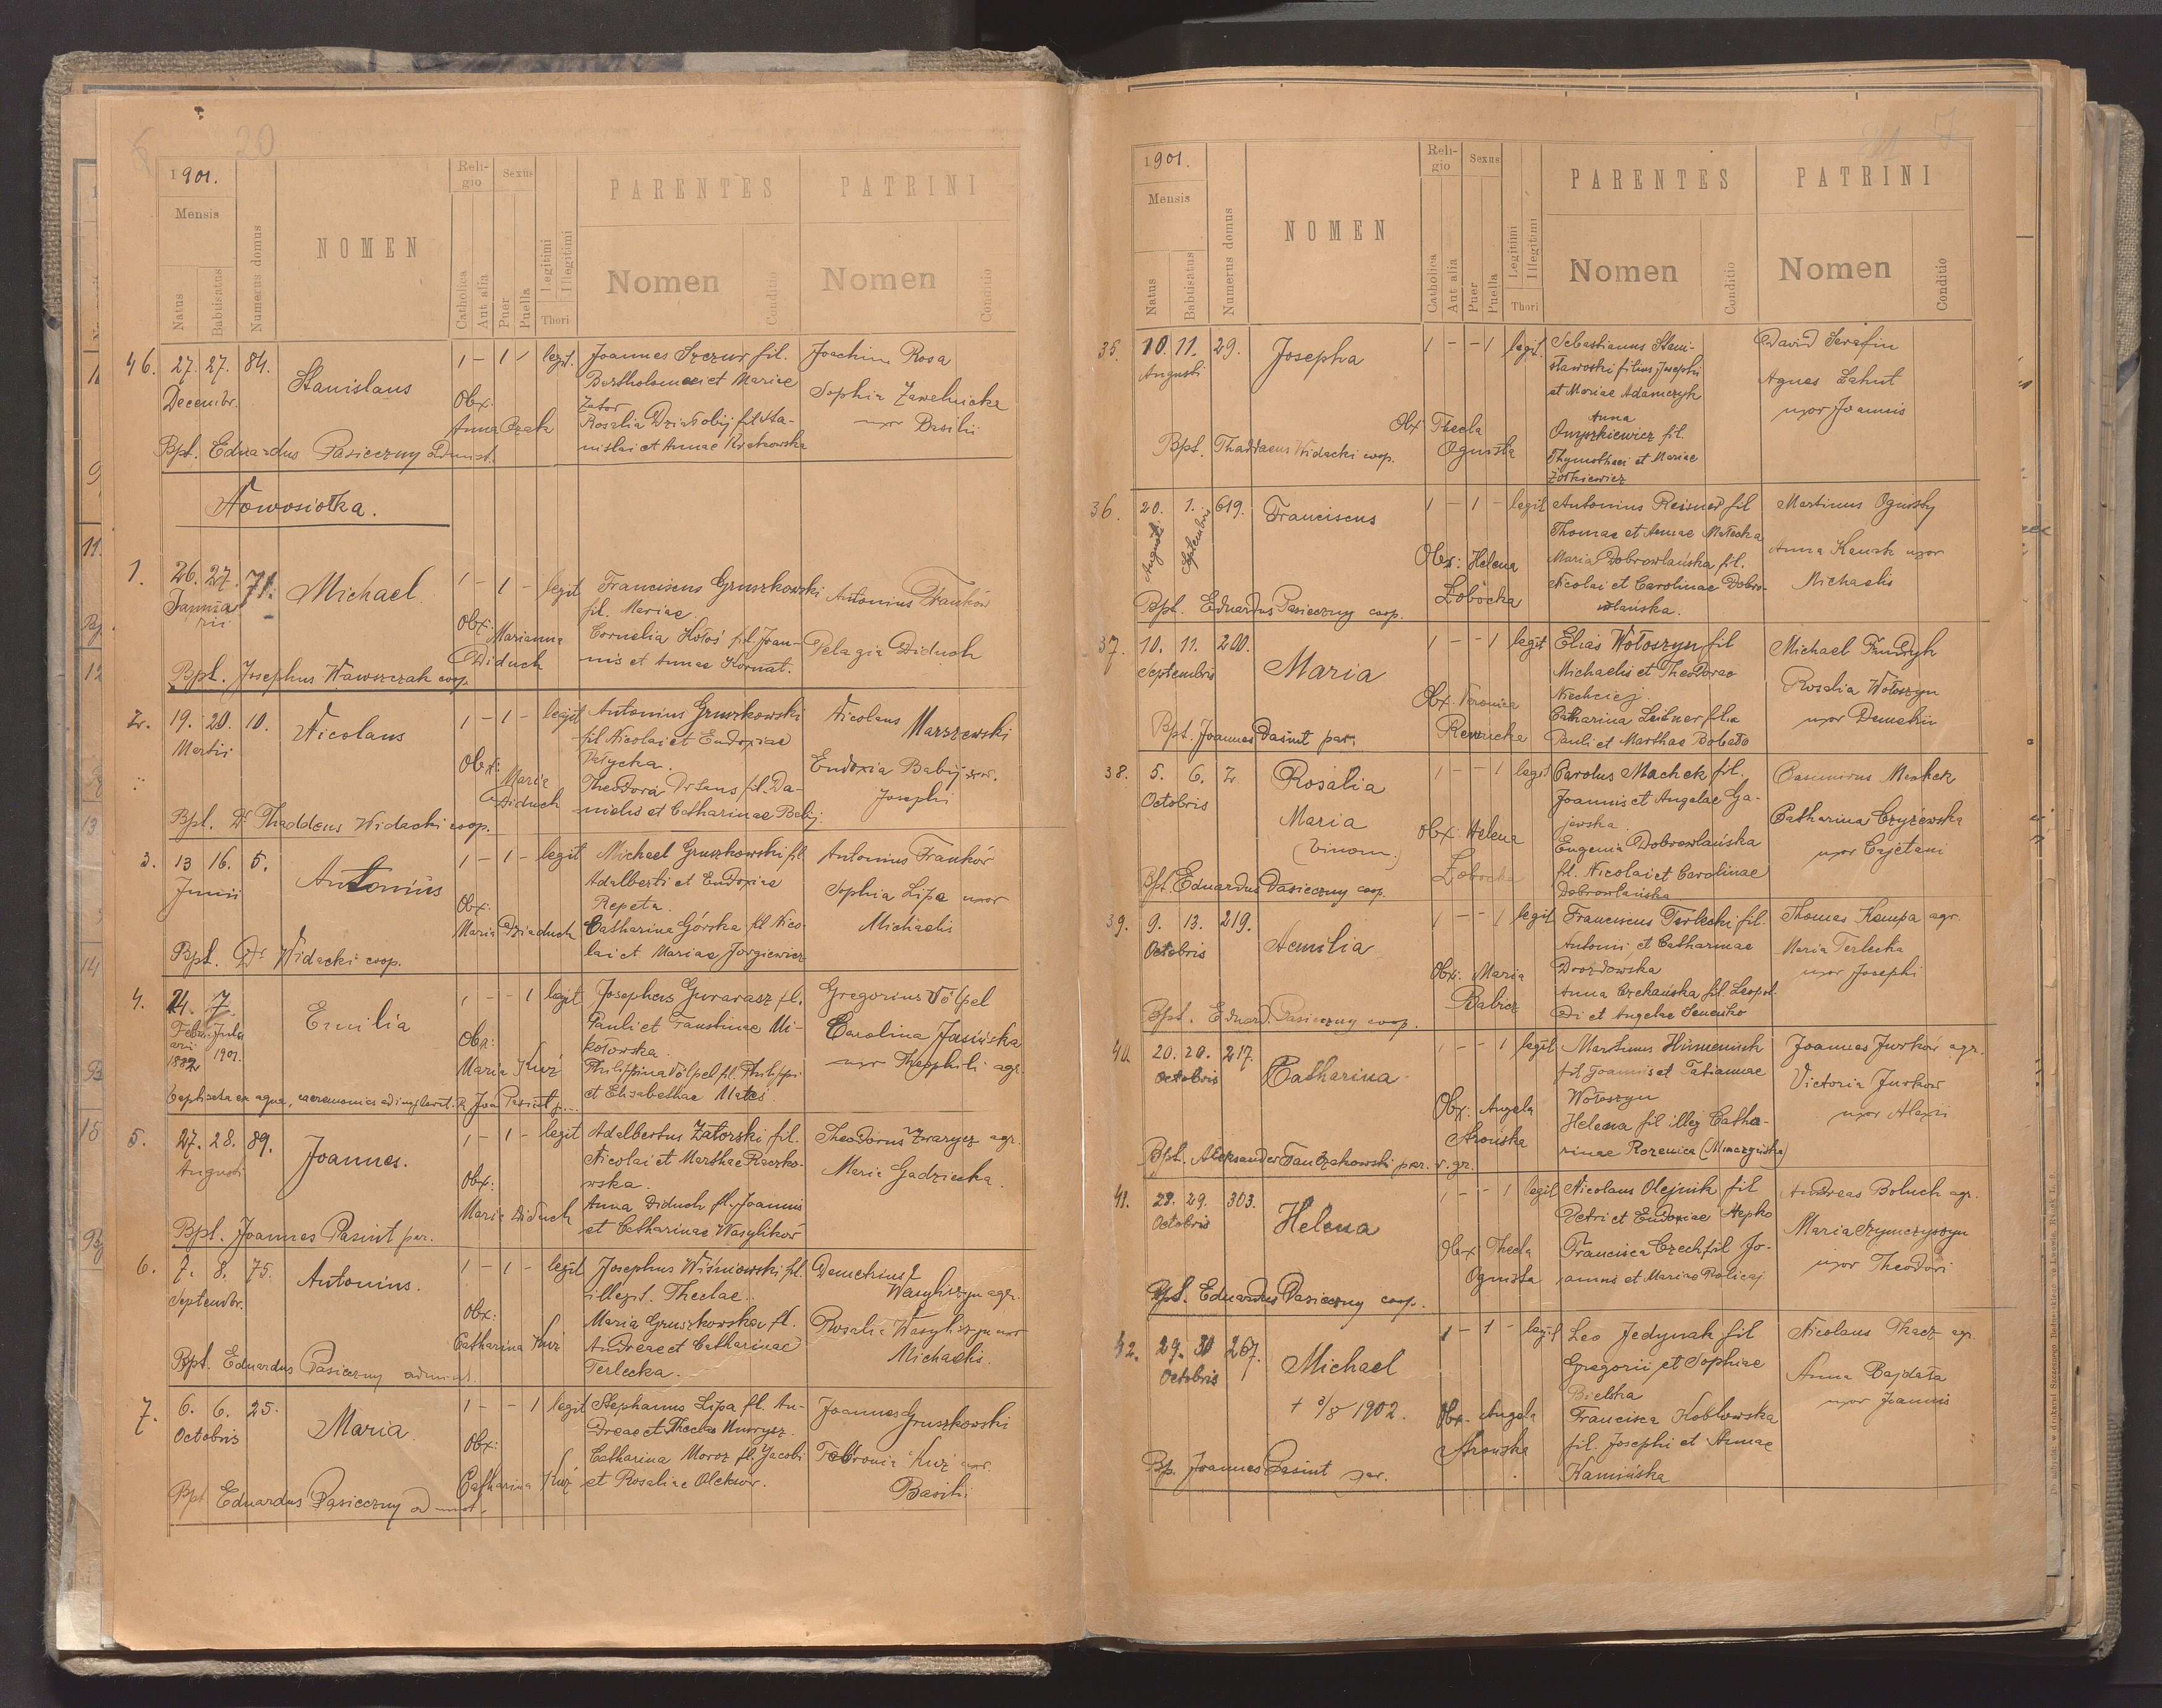 20
1901.
Mensis
Natus
Babtisatus
Numerus domus
NOMEN
Religio
Catholica
Aut alia
Sexus
Puer
Puella
Legitimi
Illegitimi
Thori
PARENTES
Nomen
Conditio
PATRINI
Nomen
Conditio
46. 27. 27. 84. Stanislaus 1 - 1 - legit. Joannes Szczur fil. Joachim Rosa
Decembr. Obx: Bartholomaei et Mariae Sophia Zawelnicka
Zator
Anna Czak Rosalia fil Sta- uxor Basilii
Bpt. Eduardus Pasieczny admist. nislai et Annae Krakowska
Nowosiołka.
1. 26. 27. 71. Michael 1 - 1 - legit Franciscus Gruszkowski Antonius Franków
Januarii fil. Mariae
Obx: Marianna Diduch Cornelia Hołoś fil. Joan- Pelagia Diduch
Bpt. Josephus Wawszczak coop. nis et Annae Kornat.
2. 19. 20. 10. Nicolaus 1 - 1 - legit Antonius Gruszkowski Nicolaus Marszewski
Martii fil Nicolai et Eudoxiae
Pałycha. Eudoxia Babij uxor.
Obx: Maria Diduch Theodora fil. Da- Josephi
Bpt. Dr Thaddeus Widacki coop. nielis et Catharinae Babij
3. 13 16. 5. Antonius 1 - 1 - legit Michael Gruszkowski fil Antonius Franków
Junii Adalberti et Eudoxiae Sophia Lipa uxor
Obx: Repeta. Michaeli
Maria Dziaduch Catharina Górska fil Nico
Bpt. Dr Widacki coop. lai et Mariae Jorgiewicz
4. 24. 7. Emilia 1 - - 1 legit Josephus Gurarasz fil. Gregorius Völpel
Februarii Julii Obx: Pauli et Faustinae Mi- Carolina Jasińska
1882 1901. kołowska. uxor Theophili agr.
Maria Kuź Philippina Völpel fil. Philippi
Baptisata ex aqua, caeremonias adimplevit R. Joa Pasint p. et Elisabethae Mates
5. 27. 28. 89. Joannes. 1 - 1 - legit Adalbertus Zatorski fil. Theodorus Zwarycz agr.
Augusti Nicolai et Marthae Raczko- Maria Gadzicka.
Obx: wska.
Maria Diduch Anna Diduch fil. Joannis
Bpt. Joannes Pasint par. et Catharinae Wasylików
6. 7. 8. 75. Antonius. 1 - 1 - legit Josephus Wiśniowski fil. Demetrius
Septembr. illegit. Theclae. Wasyliszyn agr.
Obx: Maria Gruszkowska fil. Rosalia Wasyliszyn uxor
Catharina Kuź Andreae et Catharinae Michaelis.
Bpt. Eduardus Pasieczny admist. Terlecka.
7. 6. 6. 25. Maria 1 - - 1 legit Stephanus Lipa fil. An- Joannes Gruszkowski
Octobris dreae et Theclae
Obx: Catharina Moroz fil. Jacobi Febronia Kuź uxor.
Catharina Kuź et Rosaliae Oleków. Basilii
Bpt Eduardus Pasieczny admist.
1901.
Mensis
Natus
Babtisatus
Numerus domus
NOMEN
Religio
Catholica
Aut alia
Sexus
Puer
Puella
Legitimi
Illegitimi
Thori
PARENTES
Nomen
Conditio
PATRINI
Nomen
Conditio
35. 10. 11. 29. Josepha 1 - - 1 legit. Sebastianus Stani- David Serafin
Augusti sławski filius Josephi Agnes Łahut
et Mariae Adamczyk uxor Joannis
Obx Thecla Ognista Anna
Onyszkiewicz fil.
Bpt. Thaddaeus Widacki coop. Thymothaei et Mariae
Żółkiewicz
36. 20. 1. 619. Franciscus 1 - 1 - legit Antonius Reisner fil Martinus Ognisty
Augusti Septembris Thomae et Annae Małecka Anna Kanak uxor
Obx: Helena Maria Dobrowlańska fil. Michaelis
Łobocka Nicolai et Carolinae Dobro-
Bpt. Eduardus Pasieczny coop. wlańska.
37. 10. 11. 200. Maria 1 - - 1 legit Elias Wołoszyn fil Michael Fundyk
Septembris Michaelis et Theodorae Rosalia Wołoszyn
Obx. Veronica Niechciej. uxor Demetrii
Catharina Leibner filia
Bpt. Joannes Pasint par. Pauli et Marthae Bobało
38. 5. 6. 2. Rosalia 1 - - 1 legit Carolus Machek fil. Casimirus Machek
Octobris Maria Joannis et Angelae Ga- Catharina Czyżewska
(binom.) jewska uxor Cajetani
Obx: Helena Łobocka Eugenia Dobrowlańska
Bpt. Eduardus Pasieczny coop. fil. Nicolai et Carolinae
Dobrowlańska
39. 9. 13. 219. Aemilia 1 - - 1 legit Franciscus Terlecki fil. Thomas Kempa agr.
Octobris Antonii et Catharinae Maria Terlecka
Obx: Maria Babicz Drozdowska uxor Josephi
Anna Czekańska fil. Leopol-
Bpt. Eduard. Pasieczny coop. di et Angelae Senenko
40. 20. 20. 217. Catharina 1 - - 1 legit Martinus Humeniuk Joannes Jurków agr.
Octobris fil Joannis et Tatiannae Victoria Jurków
Obx: Angela Wołoszyn uxor Alexii
Arońska Helena fil illeg Catha-
Bpt. Aleksander Tanczakowski par. r. gr. rinae Rozenica
41. 28. 29. 303. Helena 1 - - 1 legit Nicolaus Olejnik fil Andreas Boluch agr.
Octobris Petri et Eudoxiae Hepko Maria Szymczyszyn
Obx: Thecla Ognista Francisca Czech fil Jo- uxor Theodori
Bpt. Eduardus Pasieczny coop. annis et Mariae Policaj
42. 29. 30 267. Michael 1 - 1 - legit Leo Jedynak fil Nicolaus Tkacz agr.
Octobris Gregorii et Sophiae Anna Bajdała
+ 3/8 1902. Bielska uxor Joannis
Obx. Angela Arońska Francisca Kobłowska
fil. Josephi et Annae
Bp. Joannes Pasint par. Kamińska